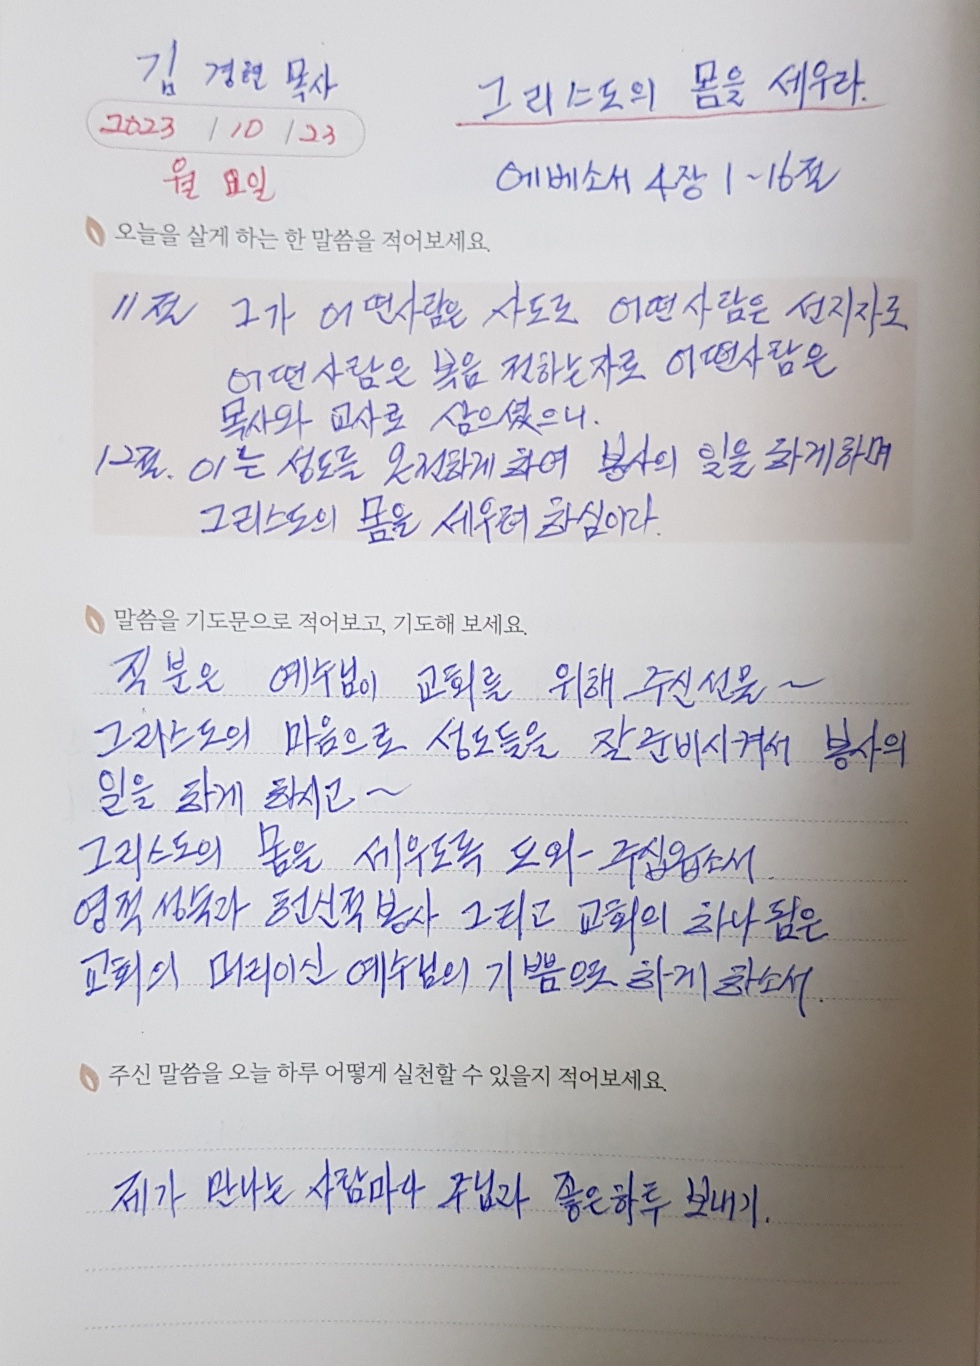 김 경현 목사
그리스도의 몸을 세우라.
2023 / 10 / 23
월 요일
에베소서 4장 1~16절
오늘을 살게 하는 한 말씀을 적어보세요.
11절 그가 어떤사람은 사도로 어떤사람은 선지자로
어떤사람은 복음 전하는자로 어떤사람은
목사와 교사로 삼으셨으니.
12절. 이는 성도를 온전하게 하여 봉사의 일을 하게하며
그리스도의 몸을 세우려 하심이라.
말씀을 기도문으로 적어보고, 기도해 보세요.
직분은 예수님이 교회를 위해 주신선물~
그리스도의 마음으로 성도들을 잘 준비시켜서 봉사의
일을 하게 하시고~
그리스도의 몸을 세우도록 도와 주십옵소서.
영적성숙과 헌신적봉사 그리고 교회의 하나됨은
교회의 머리이신 예수님의 기쁨으로 하게 하소서.
주신 말씀을 오늘 하루 어떻게 실천할 수 있을지 적어보세요.
제가 만나는 사람마다 주님과 좋은하루 보내기.